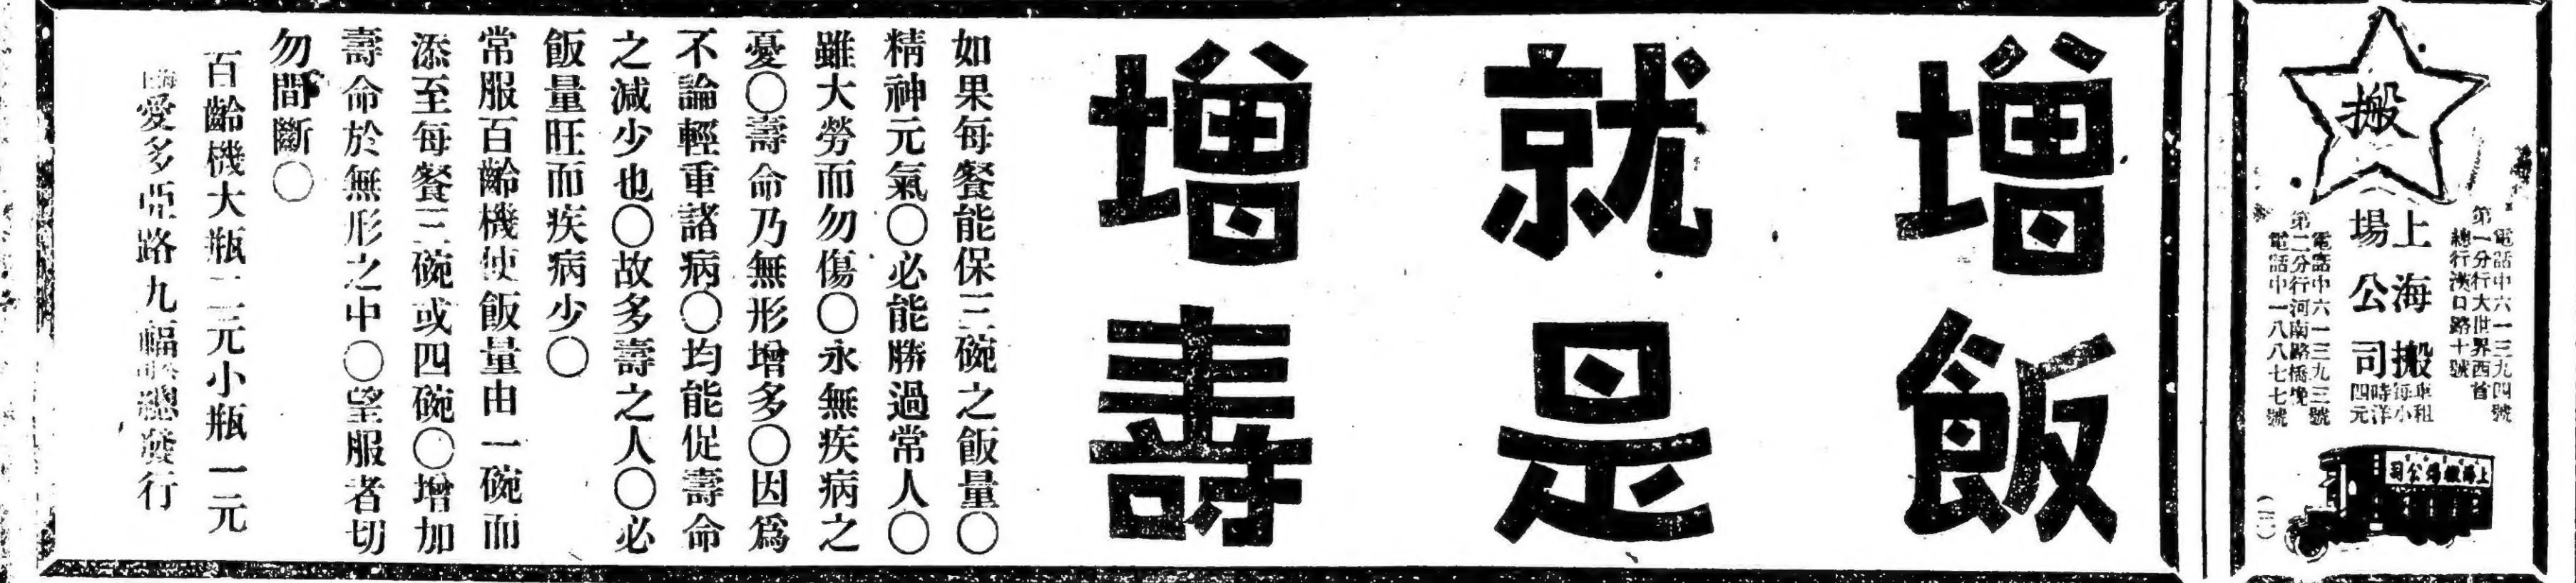 搬
電話中六一三九四號
第一分行大世界西首
總行漢口路十號
上海搬
場公司
車租
每小
時洋
四元
電話中六一三九三號
第二分行河南路橋堍
電話中一八八七七號
上海搬場公司
增飯
就是
增壽
如果每餐能保三碗之飯量〇
精神元氣〇必能勝過常人〇
雖大勞而勿傷〇永無疾病之
憂〇壽命乃無形增多〇因為
不論輕重諸病〇均能促壽命
之減少也〇故多壽之人〇必
飯量旺而疾病少〇
常服百齡機使飯量由一碗而
添至每餐三碗或四碗〇增加
壽命於無形之中〇望服者切
勿間斷〇
百齡機大瓶二元小瓶一元
上海愛多亞路九福總發行